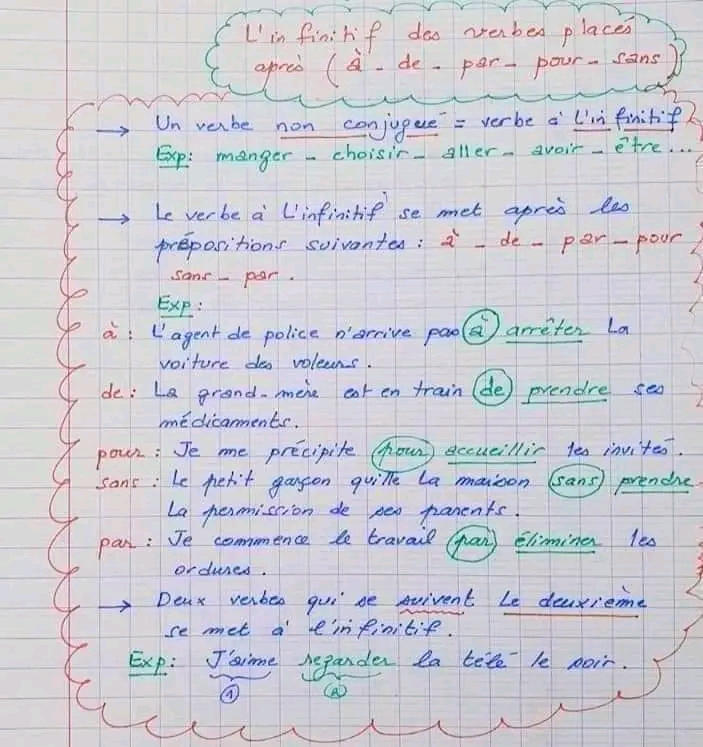 L'infinitif des verbes placés
après (à - de - par - pour - sans)
→ Un verbe non conjugué = verbe à l'infinitif
Exp: manger - choisir - aller - avoir - être...
→ Le verbe à L'infinitif se met après les
prépositions suivantes : à - de - par - pour
sans - par.
Exp :
à : L'agent de police n'arrive pas à arrêter La
voiture des voleurs.
de : La grand-mère est en train de prendre ses
médicaments.
pour : Je me précipite pour accueillir les invités.
sans : Le petit garçon quitte La maison sans prendre
La permission de ses parents.
par : Je commence le travail par éliminer les
ordures.
→ Deux verbes qui se suivent Le deuxième
se met à l'infinitif.
Exp: J'aime regarder la télé le soir.
1 2